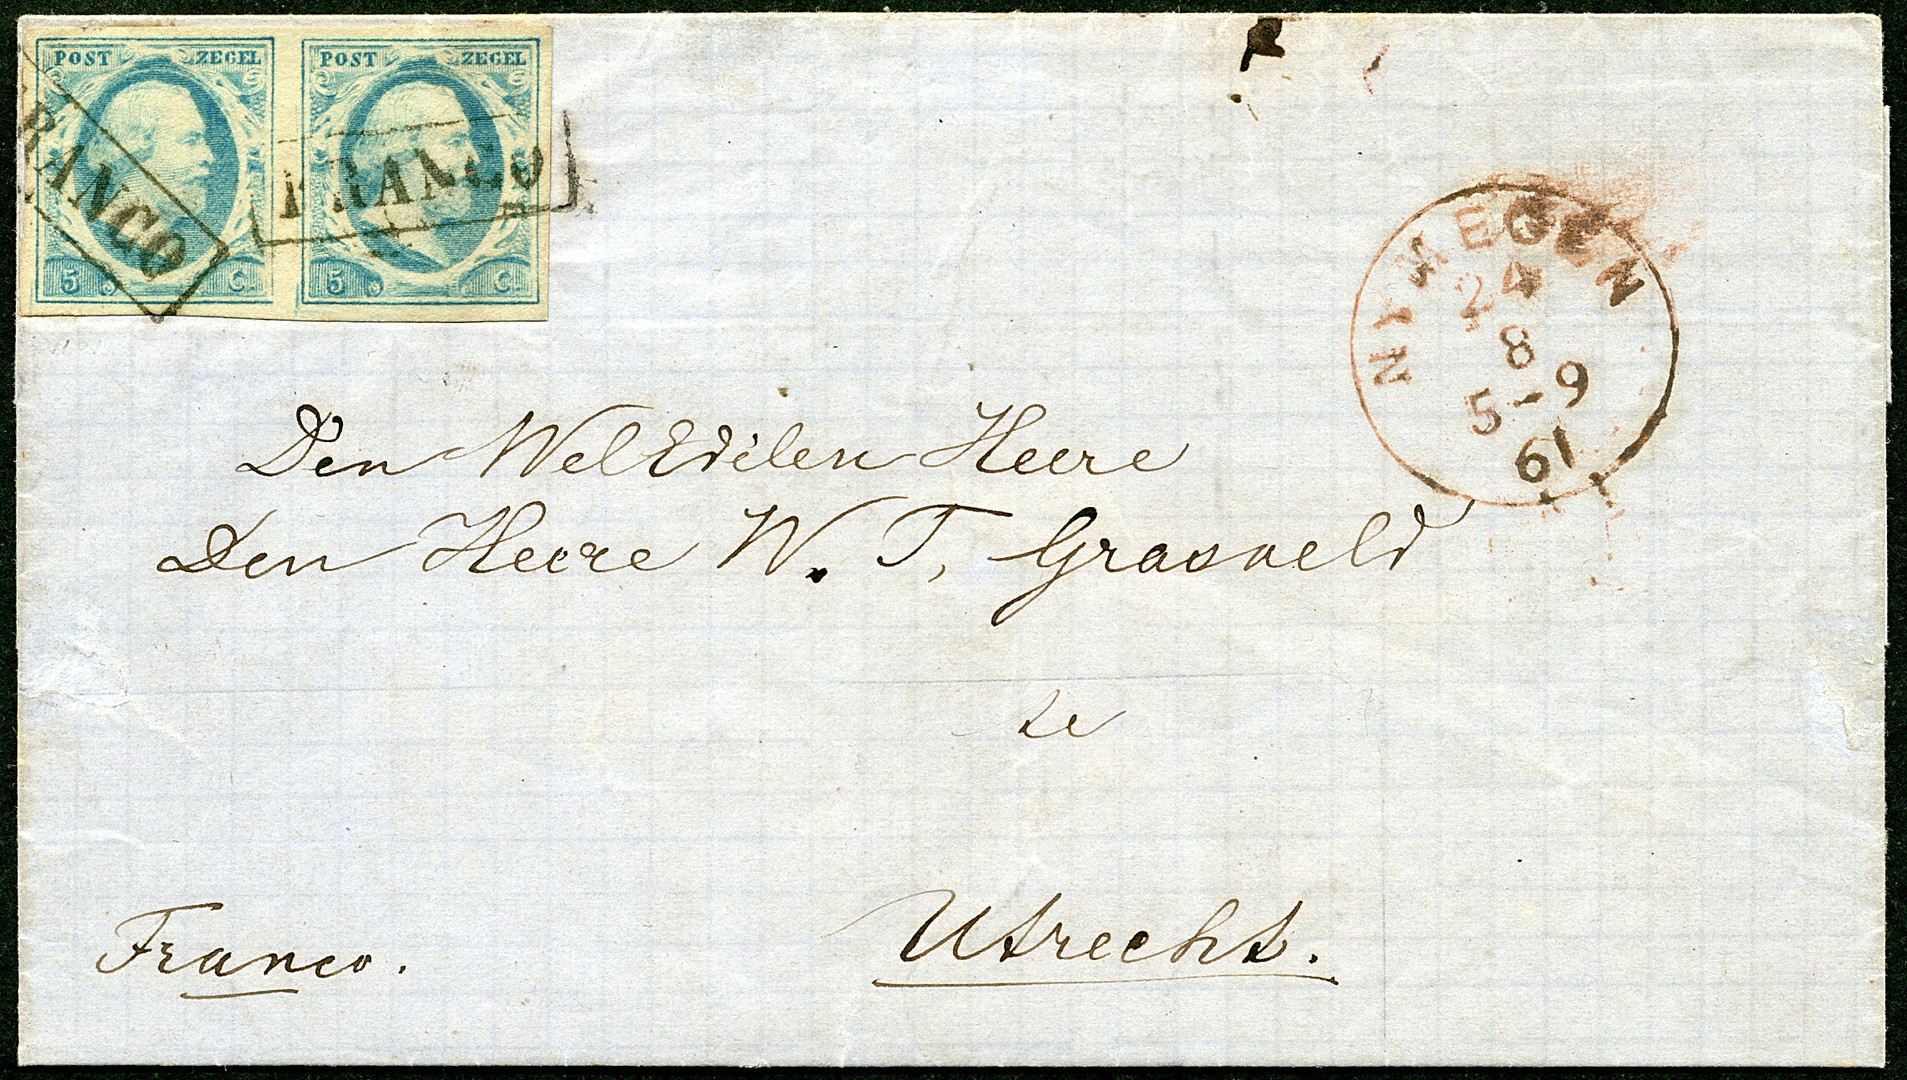 POST ZEGEL POST ZEGEL
FRANCO FRANCO
5 C. 5 C.
NIJMEGEN
24
8
5-9
61
Den WelEdelen Heere
Den Heere W. T. Grasveld
te
Utrecht.
Franco.